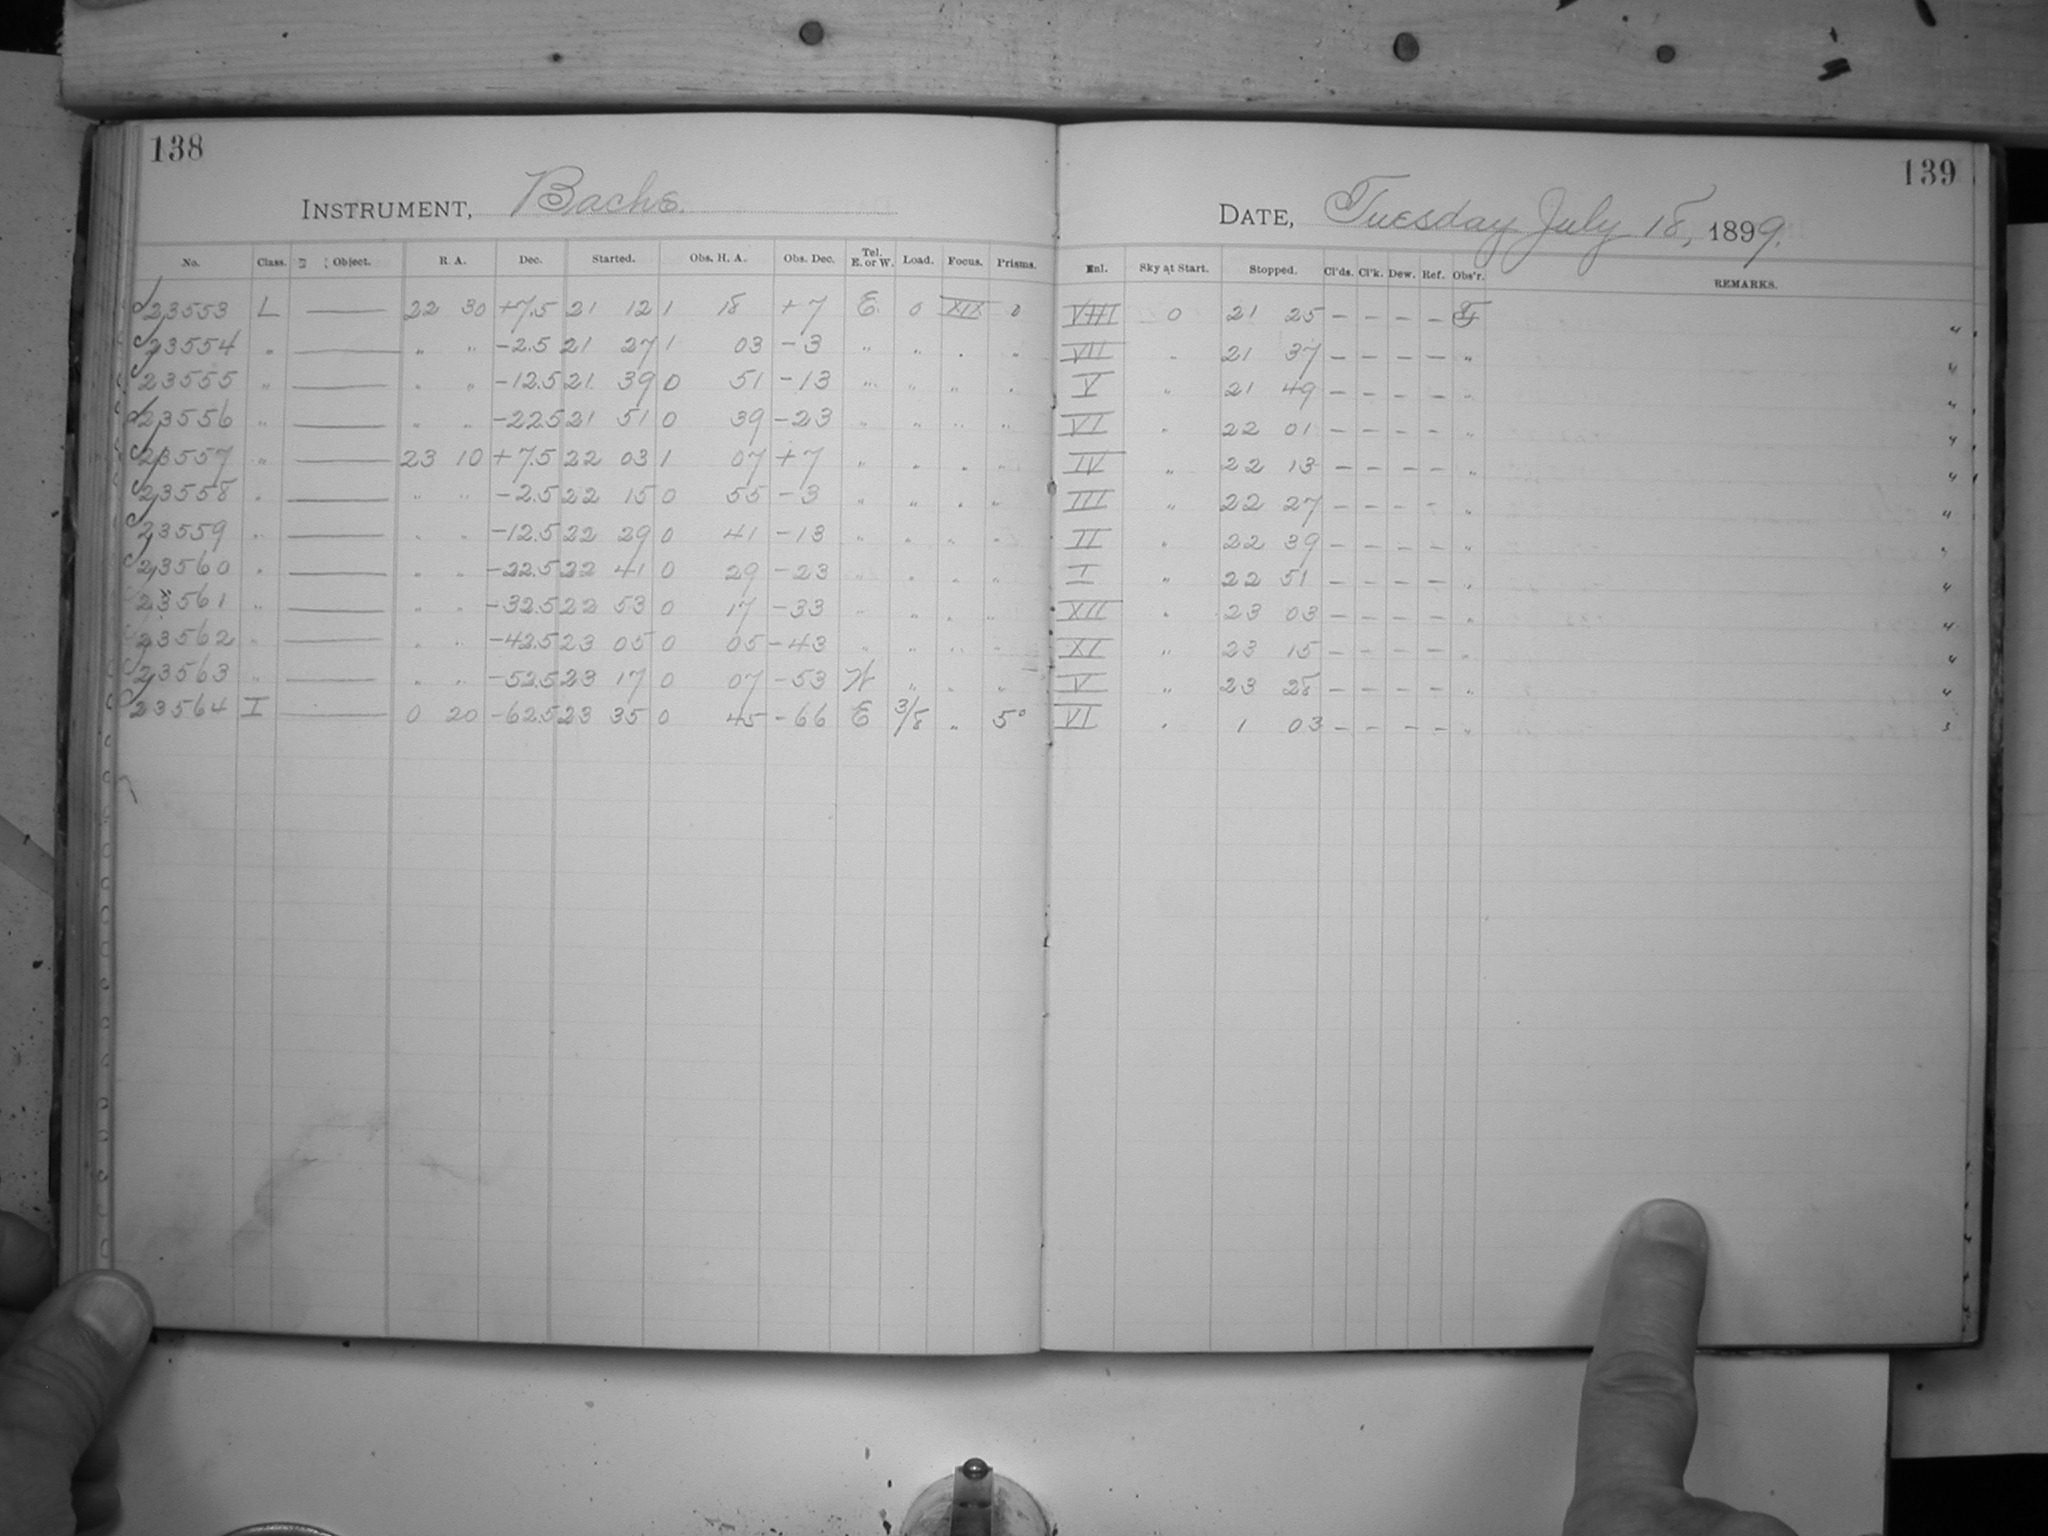 138
139
INSTRUMENT, Bache.
DATE, Tuesday July 18, 1899.
No. Class. Object. R. A. Dec. Started. Obs. H. A. Obs. Dec. Tel. E. or W. Load. Focus. Prisms. Enl. Sky at Start. Stopped. Cl'ds. Cl'k. Dew. Ref. Obs'r. REMARKS.
23553 L — 22 30 +7.5 21 12 1 18 +7 E. 0 XIX 0 VIII 0 21 25 – – – –
23554 " — " " -2.5 21 27 1 03 -3 " " " " VII " 21 37 – – – – "
23555 " — " " -12.5 21 39 0 51 -13 " " " " V " 21 49 – – – – "
23556 " — " " -22.5 21 51 0 39 -23 " " " " VI " 22 01 – – – – "
23557 " — 23 10 +7.5 22 03 1 07 +7 " " " " IV " 22 13 – – – – "
23558 " — " " -2.5 22 15 0 55 -3 " " " " III " 22 27 – – – – "
23559 " — " " -12.5 22 29 0 41 -13 " " " " II " 22 39 – – – – "
23560 " — " " -22.5 22 41 0 29 -23 " " " " I " 22 51 – – – – "
23561 " — " " -32.5 22 53 0 17 -33 " " " " XII " 23 03 – – – – "
23562 " — " " -42.5 23 05 0 05 -43 " " " " XI " 23 15 – – – – "
23563 " — " " -52.5 23 17 0 07 -53 W " " " V " 23 28 – – – – "
23564 I — 0 20 -62.5 23 35 0 45 -66 E 3/8 " 5° VI " 1 03 – – – – "